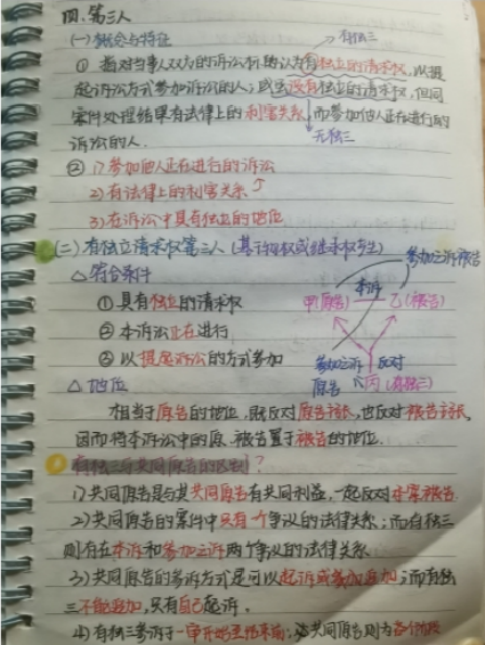 四、第三人
(一)概念与特征
→有独三
① 指对当事人双方的诉讼标的认为有独立的请求权,以提
起诉讼方式参加诉讼的人;或者没有独立的请求权,但同
案件处理结果有法律上的利害关系,而参加他人正在进行的
诉讼的人.
无独三
② 1)参加他人正在进行的诉讼
2)有法律上的利害关系
3)在诉讼中具有独立的地位
(二)有独立请求权第三人(基于物权或继承权产生)
参加之诉被告
△符合条件
本诉
①具有独立的请求权
甲(原告) 乙(被告)
②本诉讼正在进行
③以提起诉讼的方式参加
参加之诉 反对
原告 丙(有独三)
△地位
相当于原告的地位,既反对原告主张,也反对被告主张,
因而将本诉讼中的原、被告置于被告的地位.
有独三与共同原告的区别?
1)共同原告是与其共同原告有共同利益,一起反对 被告
2)共同原告的案件中只有一个争议的法律关系;而有独三
则有在本诉和参加之诉两个争议的法律关系
3)共同原告的参诉方式是可以起诉或参加追加;而有独
三不能追加,只有自己起诉.
4)有独三参诉于一审开始至结束前;必共同原告则为各个阶段